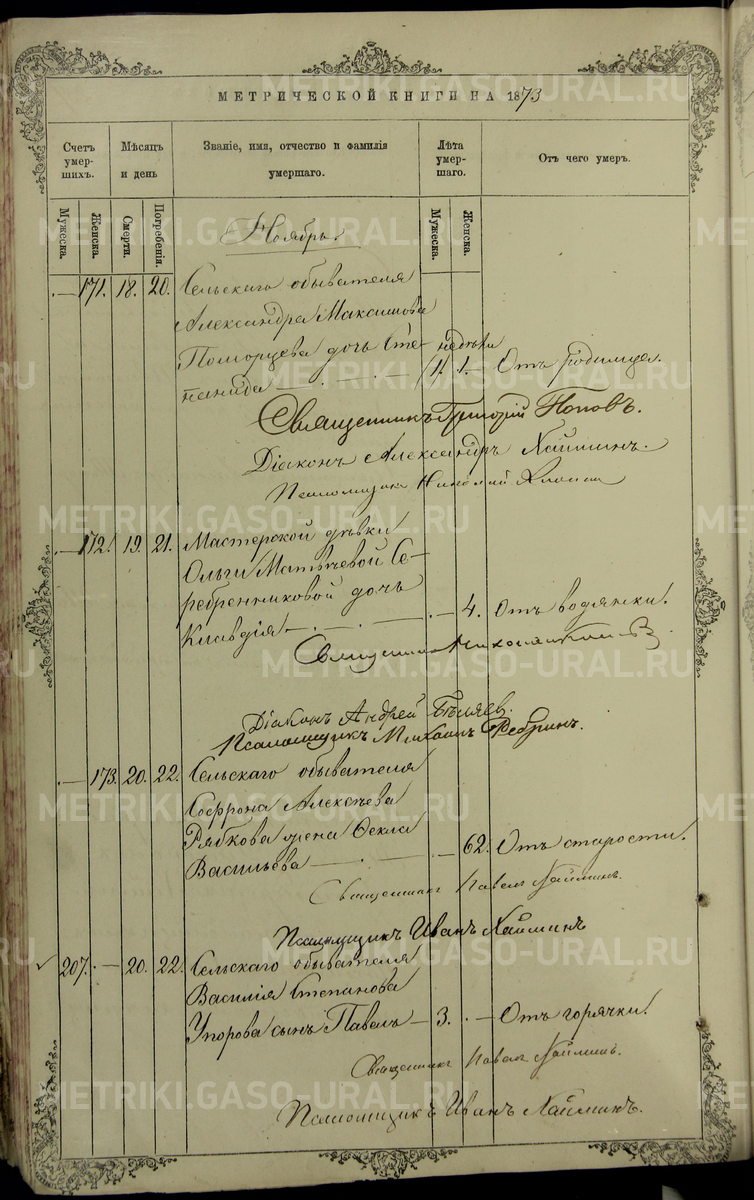 МЕТРИЧЕСКОЙ КНИГИ НА 1873
Счетъ умер-шихъ.
Мѣсяцъ и день
Званіе, имя, отчество и фамилія умершаго.
Лѣта умер-шаго.
Отъ чего умеръ.
Мужеска.
Женска.
Смерти.
Погребенія.
Мужеска.
Женска.
Ноябрь.
171. 18. 20. Сельскаго обывателя
Александра Максимова
Поморцева дочь Сте- недѣли
панида 1. Отъ родимца.
Священникъ Григорій Поповъ.
Діаконъ Александръ Хайминъ.
Псаломщикъ Николай
172. 19. 21. Мастерской дѣвки
Ольги Матвѣевой Се-
ребренниковой дочь
Клавдія 4. Отъ водянки.
Священникъ
Діаконъ Андрей Бѣляев.
Псаломщикъ Михаилъ
173. 20. 22. Сельскаго обывателя
Софрона Алексѣева
Рябкова жена Ѳекла
Васильева 62. Отъ старости.
Священникъ Павелъ Хайминъ.
Псаломщикъ Иванъ Хайминъ
207. 20. 22. Сельскаго обывателя
Василія Степанова
Упорова сынъ Павелъ 3. Отъ горячки.
Священникъ Павелъ Хайминъ.
Псаломщикъ Иванъ Хайминъ.
METRIKI.GASO-URAL.RU